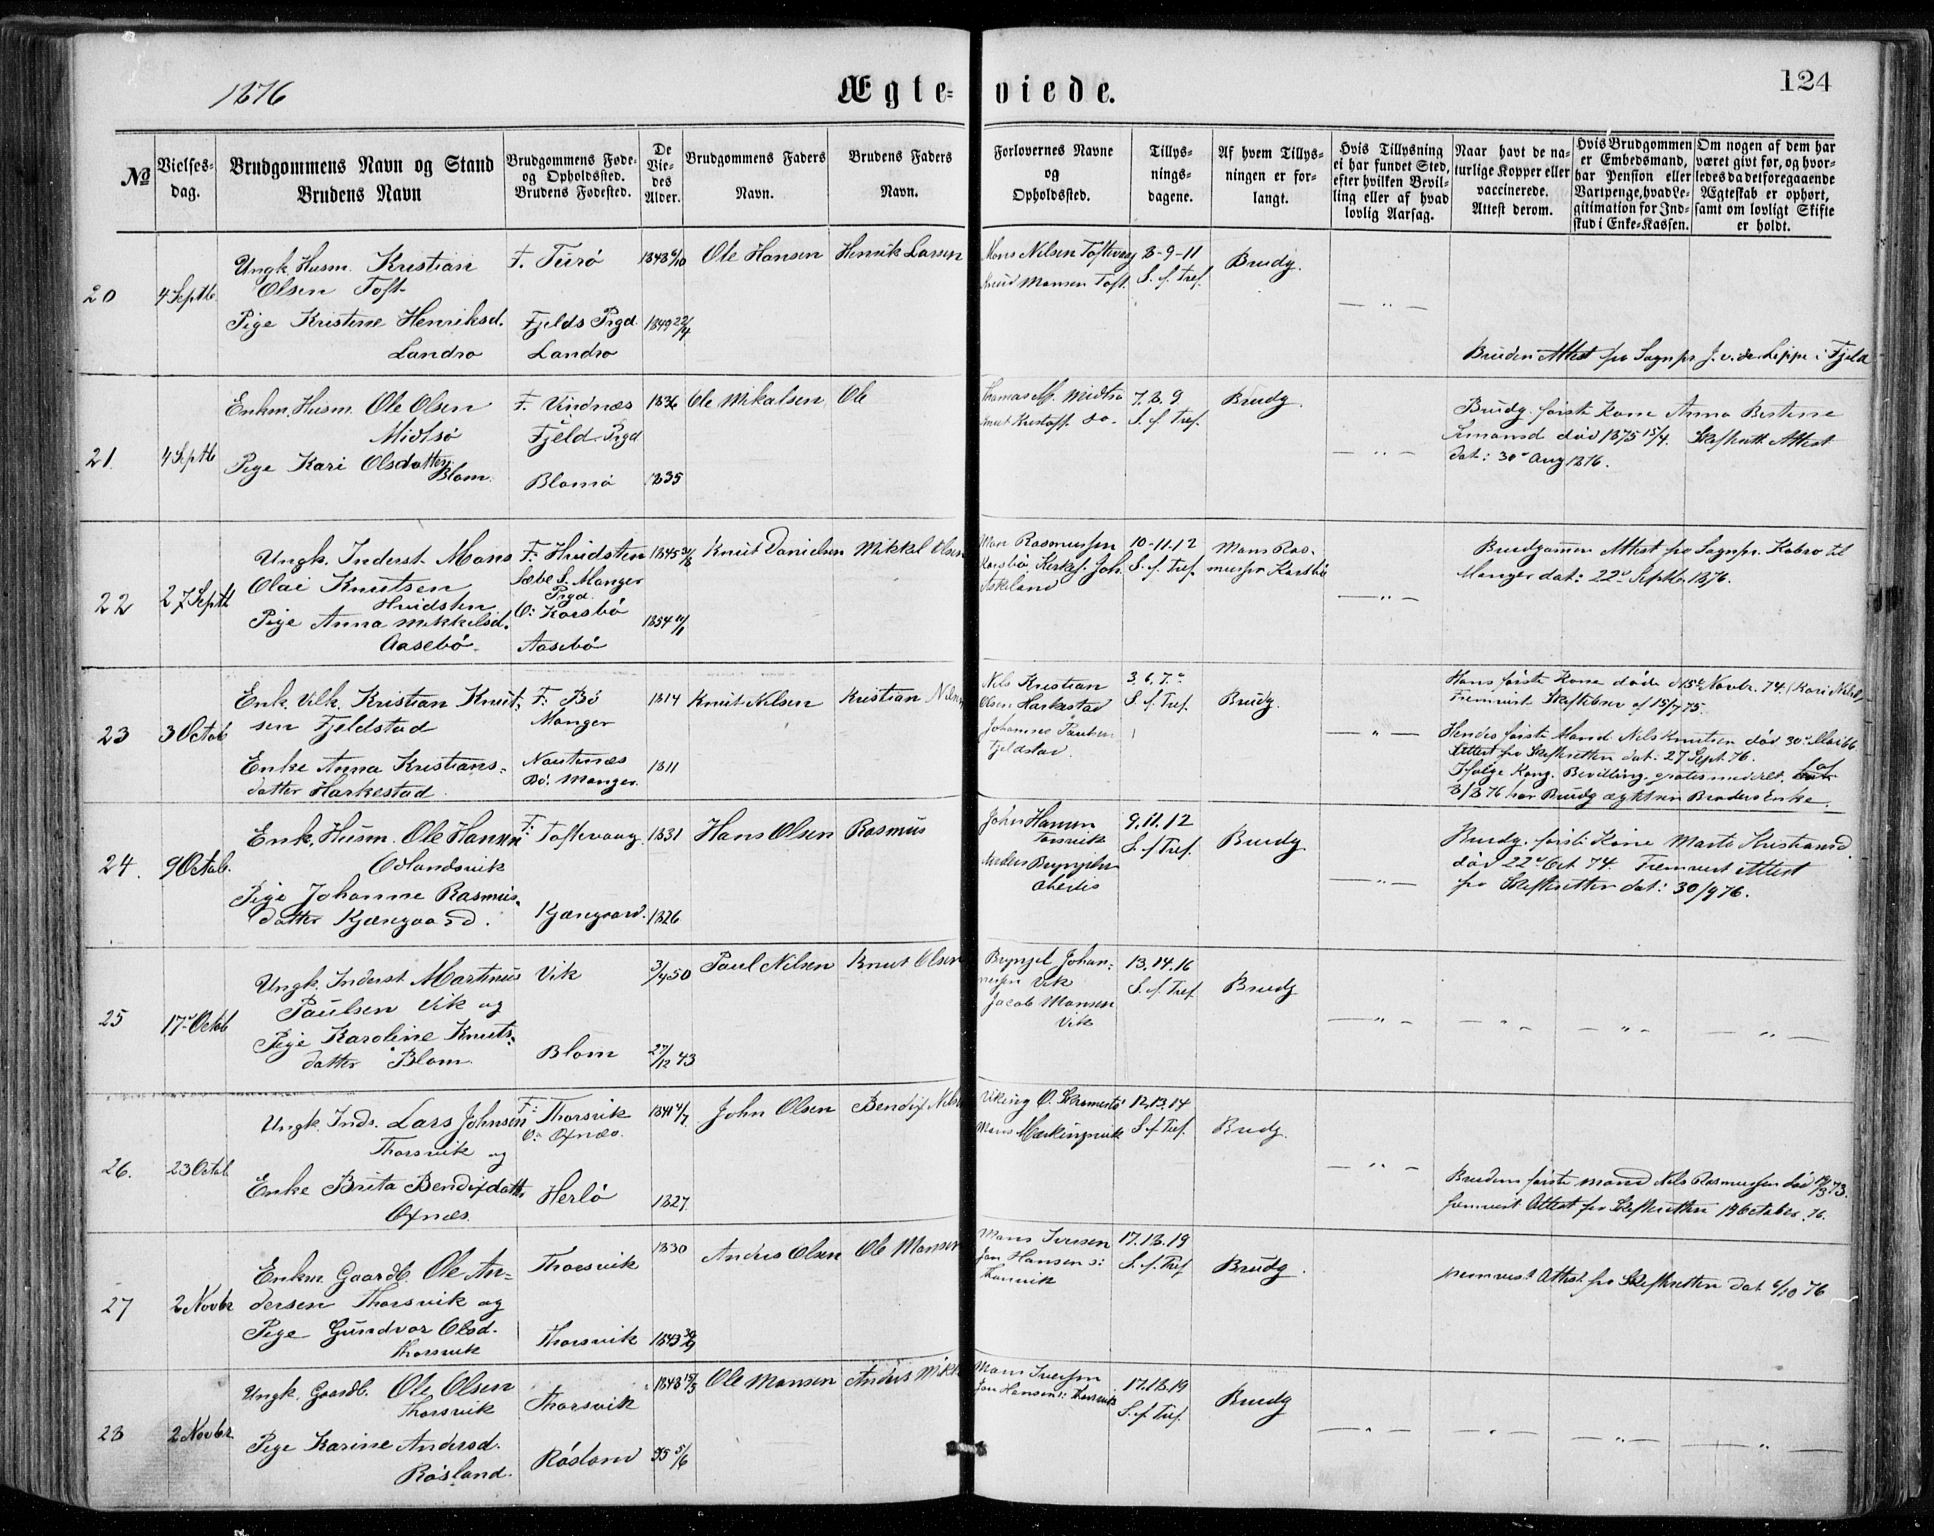 1876
Ægte-viede.
124
№
Vielses-dag.
Brudgommens Navn og Stand
Brudens Navn
Brudgommens Føde-
og Opholdssted.
Brudens Fødested.
De
Vie-
des
Alder.
Brudgommens Faders
Navn.
Brudens Faders
Navn.
Forlovernes Navne
og
Opholdssted.
Tillys-
nings-
dagene.
Af hvem Tillys-
ningen er for-
langt.
Hvis Tillysning
ei har fundet Sted,
efter hvilken Bevil-
ling eller af hvad
lovlig Aarsag.
Naar havt de na-
turlige Kopper eller
vaccinerede.
Attest derom.
Hvis Brudgommen
er Embedsmand,
har Pension eller
Vartpenge, hvad Le-
gitimation for Ind-
skud i Enke-Kassen.
Om nogen af dem har
været givt før, og hvor-
ledes da det foregaaende
Ægteskab er ophørt,
samt om lovligt Skifte
er holdt.
20
4 Septb
Ungk. Husm. Kristian
Olsen Toft
Pige Kristine Henriksd.
Landro
F. Turø
Fjelds Prgd.
Landro
1848 6/10
1849 22/4
Ole Hansen
Henrik Larsen
Mons Nilsen Toftevaag
Knud Monsen Toft
8-9-11
S. e. f. Tref.
Brudg.
Bruden Attest fra Sognpr J. v. der Lippe i Fjeld
21
4 Septb
Enkm. Husm. Ole Olsen
Midtsø
Pige Kari Olsdatter
Blom.
F. Vindnæs
Fjeld Prgd
Blomø
1836
1835
Ole Mikalsen
Ole
7. 8. 9
S. e. f. Tref.
Brudg.
Brudg. første Kone Anna Bertine
Simonsd død 1875 15/4. Skifterett Attest
dat: 30 Aug 1876.
22
27 Septb
Ungk. Inderst. Mons
Olai Knutsen
Hvidsten
Pige Anna Mikkelsd.
Aasebø
F: Hvidsten
Sæbø S. Manger
Prgd.
O: Karsbø
Aasebø
1854
Knut Danielsen
Mikkel Olsen
Mons Rasmussen
Karsbø, Kirkes. Joh.
Askeland
10-11.12
S. e. f. Tref.
Mons Ras-
mussen Karsbø
Brudgommen Attest fra Sognpr. Kobro til
Manger dat: 22 Septbr. 1876.
23
3 Octob
Enk. Vilk. Kristian Knut-
sen Fjeldstad
Enke Anna Kristians-
datter Harkestad
F: Bø
Manger
Noutnæs
Bø. Manger
1814
1811
Knut Nilsen
Kristian Nilsen
Nils Kristian
Olsen Harkestad
Johannes Paulsen
Fjeldstad
3. 6. 7.
S. e. f. Tref.
Brudg.
Hans første Kone døde d. 15 Novbr. 74. (Kari Nilsd.)
Fremvist Skiftebrev af 15/7 75.
Hendes første Mand Nils Knutsen død 30 Mai 66
Attest fra Skifteretten dat: 27 Sept. 76.
Ifølge Kong. Bevilling, gratis meddelt, af
8/8 76 har Brudg ægtet sin Broders Enke.
24.
9 Octob.
Enk. Husm. Ole Hansen
Odlandsvik
Pige Johanne Rasmus-
datter Kjærgaard.
F: Toftevaag
Kjærgaard.
1831
1826
Hans Olsen
Rasmus
John Hansen
Torsvik
9.11.12
S. e. f. Tref.
Brudg
Brudg. første Kone Marta Kristiansd.
død 22 Oct. 74. Fremvist Attest
fra Skifteretten dat: 30/9 76.
25
17 Octob
Ungk. Inderst Martinus
Paulsen Vik og
Pige Karoline Knuts-
datter Blom.
Vik
Blom
3/4 50
27/12 43
Paul Nilsen
Knut Olsen
Brynjel Johan-
nesen Vik
Jacob Monsen
Vik
13.14.16
S. e. f. Tref
Brudg
26.
23 Octob
Ungk. Inds. Lars Johnsen
Thorsvik og
Enke Brita Bendixdatt.
Oxnæs.
F: Thorsvik
O: Oxnæs.
Herlø
1841 4/7
1827.
John Olsen
Bendix Nils
12.13.14
S. e. f. Tref.
Brudg.
Brudens første mand Nils Rasmussen død 19/3 73.
fremvist Attest fra Skifteretten 19 October 76.
27
2 Novbr
Enkm Gaardb. Ole An-
dersen Thorsvik og
Pige Gundvor Olsd.
Thorsvik
Thorsvik
Thorsvik
1830
1843
Anders Olsen
Ole Monsen
Mons Iversen
Jon Hansen s:
Thorsvik
17.18.19
S. e. f. Tref
Brudg.
fremvist Attest fra Skifteretten dat 6/10 76
28
2 Novbr
Ungk. Gaardb. Ole Olsen
Thorsvik
Pige Karine Andersd.
Røsland.
Thorsvik
Røsland
55 5/6
Ole Monsen
Anders Mikk
Mons Iversen
Jon Hansen s: Thorsvik
17.18.19
S. e. f. Tref.
Brudg